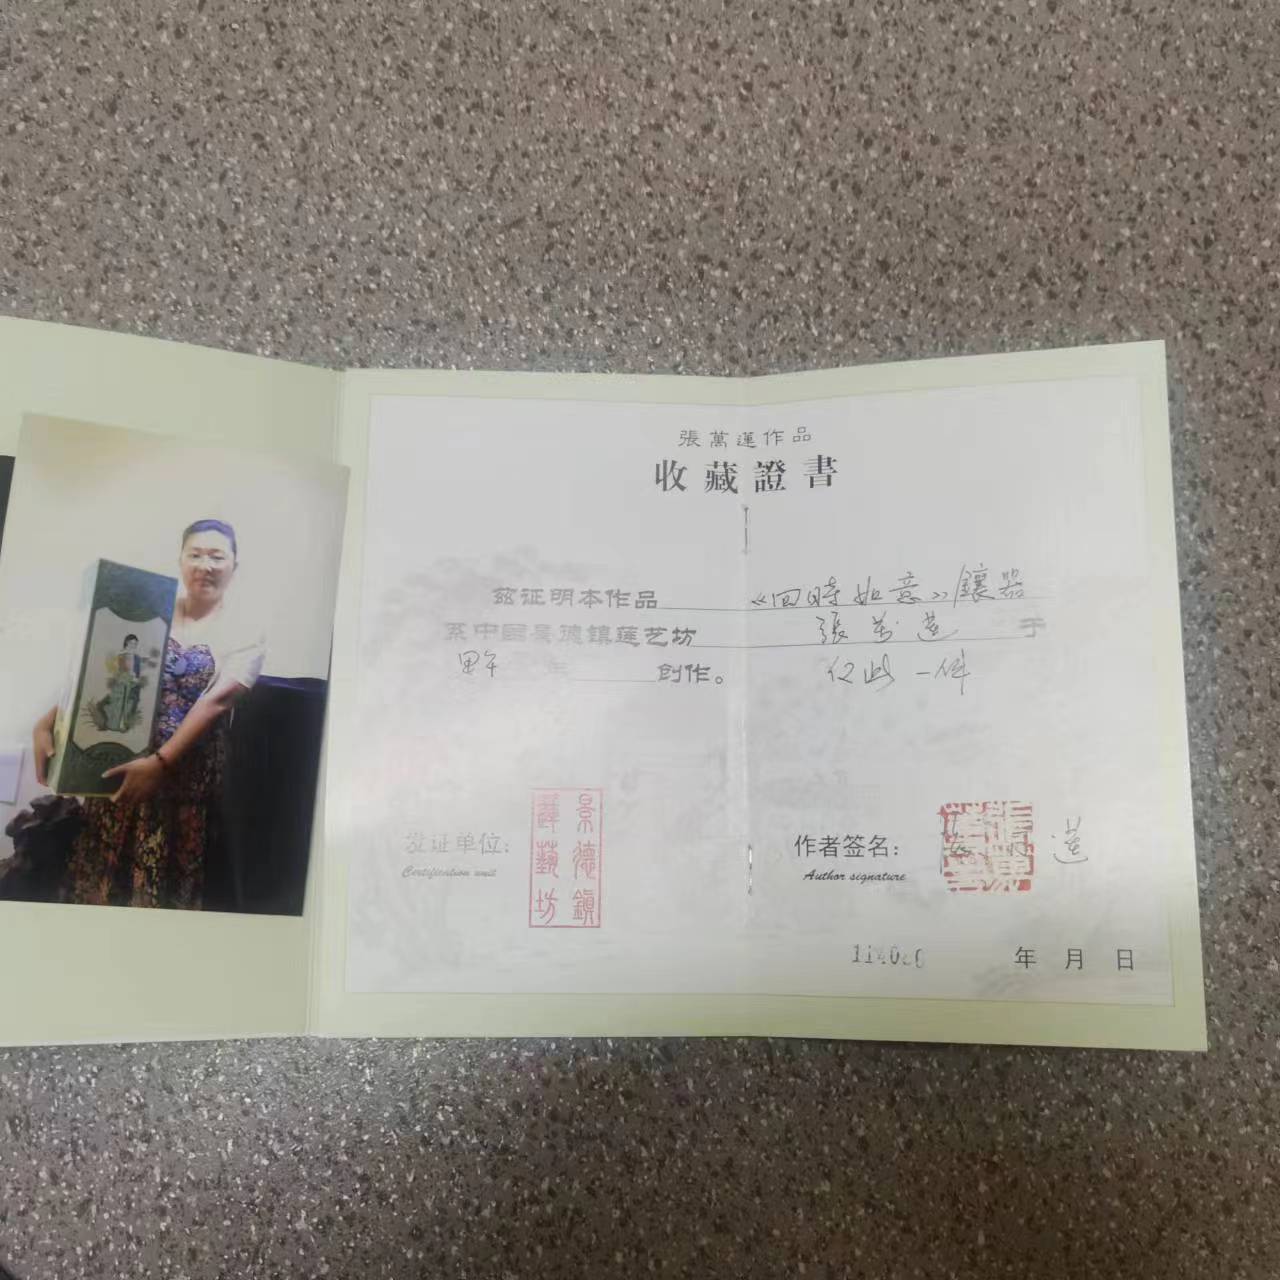 張萬蓮作品
收藏證書
兹证明本作品《四時如意》鑲器
系中國景德鎮蓮艺坊 張萬蓮 于
年 创作。 仅此一件
发证单位：
Certification unit
景德鎮
蓮藝坊
作者签名： 蓮
Author signature
年 月 日